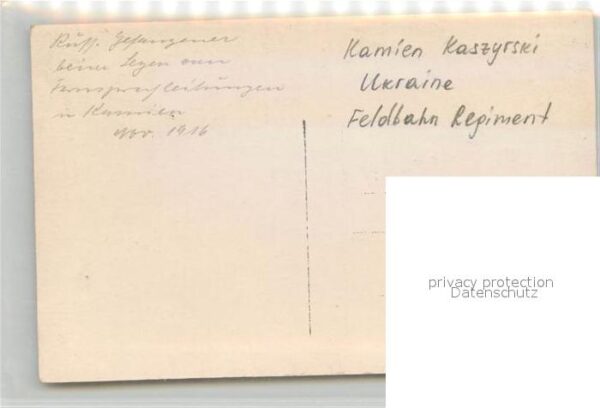 Russ. Gefangener
beim Legen von
Fernsprechleitungen
in Kamien
Nov. 1916
Kamien Kaszyrski
Ukraine
Feldbahn Regiment
privacy protection
Datenschutz